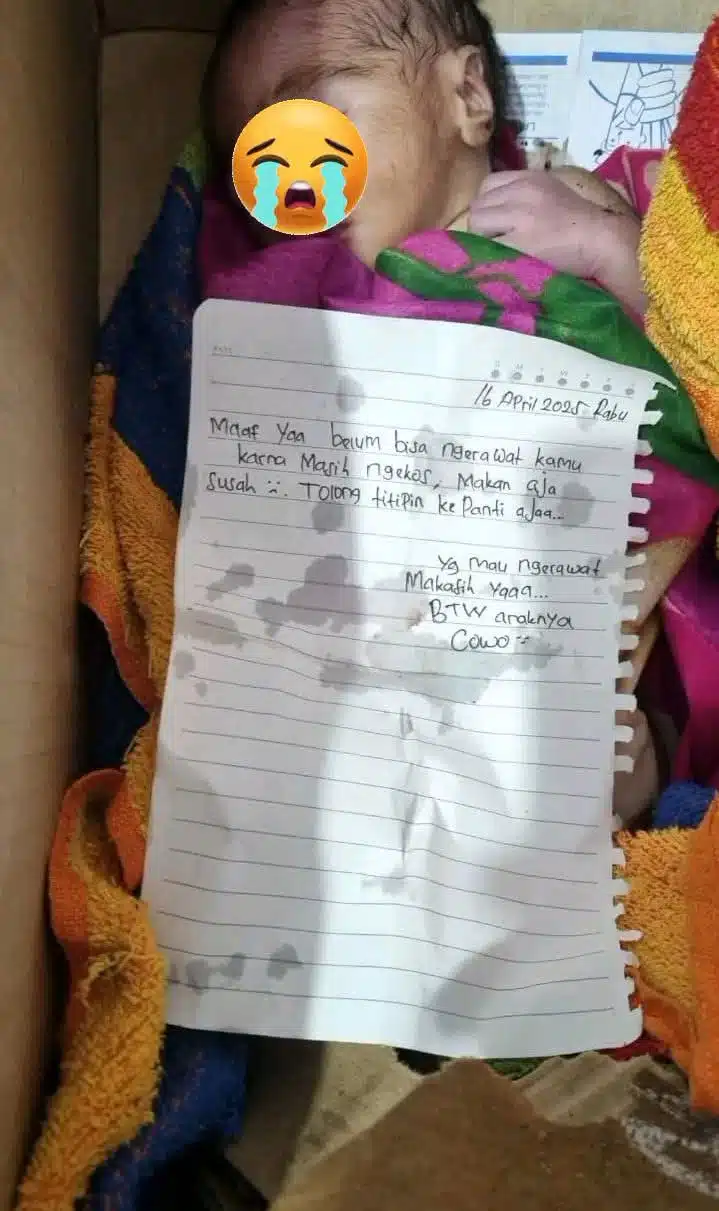 16 April 2025 Rabu
Maaf Yaa belum bisa ngerawat kamu
karna Masih ngekos, Makan aja
Susah :. Tolong titipin ke Panti ajaa...
Yg mau ngerawat
Makasih Yaaa...
BTW anaknya
Cowo